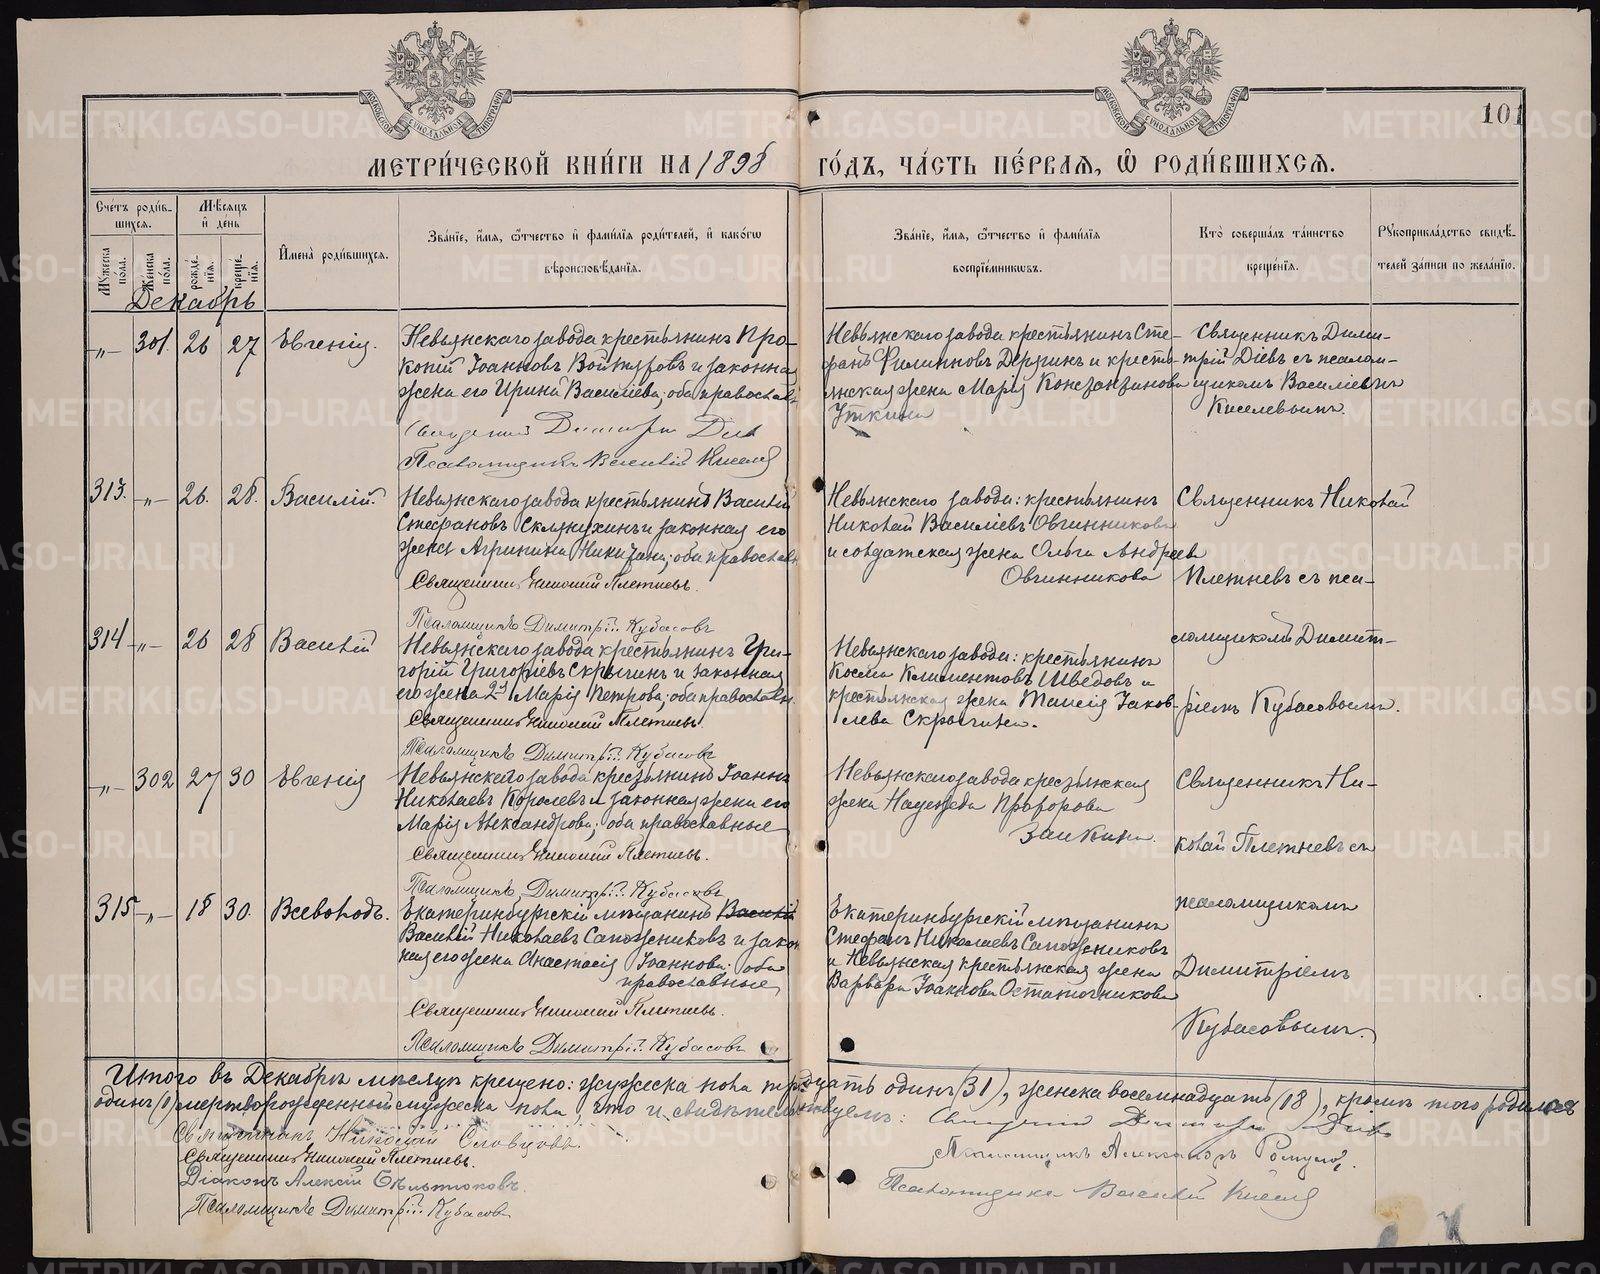 МЕТРИ́ЧЕСКОЙ КНИ́ГИ НА 1898 ГО́ДЪ, ЧА́СТЬ ПЕ́РВАЯ, Ѡ РОДИ́ВШИХСЯ.
101
Сче́тъ роди́в-
шихся.
Мѣсяцъ
и де́нь
Му́жеска по́ла.
Же́нска по́ла.
рожде́-
нія.
креще́-
нія.
Имена̀ роди́вшихся.
Зва́ніе, и́мя, ѻ́тчество и фами́лія роди́телей, и како́гѡ
вѣроисповѣ́данія.
Зва́ніе, и́мя, ѻ́тчество и фами́лія
воспріе́мниковъ.
Кто̀ соверша́лъ та́инство
креще́нія.
Рукоприкла́дство свидѣ́-
телей за́писи по жела́нію.
Декабрь
-„- 301. 26 27 Евгенія.
Невьянскаго завода крестьянинъ Про-
копій Іоанновъ и законная
жена его Ирина Василіева, оба православ.
Священникъ Димитрій Діевъ
Псаломщикъ Василій Киселев
Невьянскаго завода крестьянинъ Сте-
фанъ Филипповъ Дерягинъ и кресть-
янская жена Марія Константинова
Уткина
Священникъ Дими-
трій Діевъ съ псалом-
щикомъ Василіемъ
Киселевымъ.
313. -„- 26. 28. Василій.
Невьянскаго завода крестьянинъ Василій
Стефановъ и законная его
жена Агрипина Никитина, оба православ.
Священникъ Николай Плетневъ.
Псаломщикъ Димитрій Кубасовъ
Невьянскаго завода: крестьянинъ
Николай Василіевъ Овчинниковъ
и солдатская жена Ольга Андреева
Овчинникова
Священникъ Николай
Плетневъ съ пса-
ломщикомъ Димит-
ріемъ Кубасовымъ.
314 -„- 26 28 Василій
Невьянскаго завода крестьянинъ Гри-
горій Григоріевъ Скрыгинъ и законная
его жена Марія Петрова, оба православн.
Священникъ Николай Плетневъ.
Псаломщикъ Димитрій Кубасовъ
Невьянскаго завода: крестьянинъ
Косма Климентовъ Шведовъ и
крестьянская жена Таисія Іаков-
лева Скрыгина.
-„- 302 27 30 Евгенія
Невьянскаго завода крестьянинъ Іоаннъ
Николаевъ Королевъ и законная жена его
Марія Александрова, оба православные
Священникъ Николай Плетневъ.
Псаломщикъ Димитрій Кубасовъ
Невьянскаго завода крестьянская
жена Надежда Прохорова
Заикина.
Священникъ Ни-
колай Плетневъ съ
псаломщикомъ
Димитріемъ
Кубасовымъ.
315 -„- 18 30. Всеволодъ.
Екатеринбургскій мѣщанинъ Василій
Василій Николаевъ Сапожниковъ и закон-
ная его жена Анастасія Іоаннова, оба
православные
Священникъ Николай Плетневъ.
Псаломщикъ Димитрій Кубасовъ
Екатеринбургскій мѣщанинъ
Стефанъ Николаевъ Сапожниковъ
и Невьянская крестьянская жена
Варвара Іоаннова Остаточникова
Итого въ Декабрѣ мѣсяцѣ крещено: мужеска пола тридцать одинъ (31), женска восемнадцать (18), кромѣ того родился
одинъ (1) мертворожденный мужеска пола, что и свидѣтельствуемъ:
Священникъ Димитрій Діевъ
Священникъ Николай Словцовъ.
Священникъ Николай Плетневъ.
Діаконъ Алексій Бѣльтюковъ.
Псаломщикъ Димитрій Кубасов
Псаломщикъ Александръ
Псаломщикъ Василій Киселев
METRIKI.GASO-URAL.RU